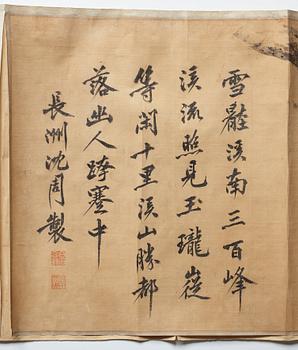 雪壓溪南三百峰
溪流照見玉瓏嵷
等閑十里溪山勝都
落幽人跨蹇中
長洲沈周製